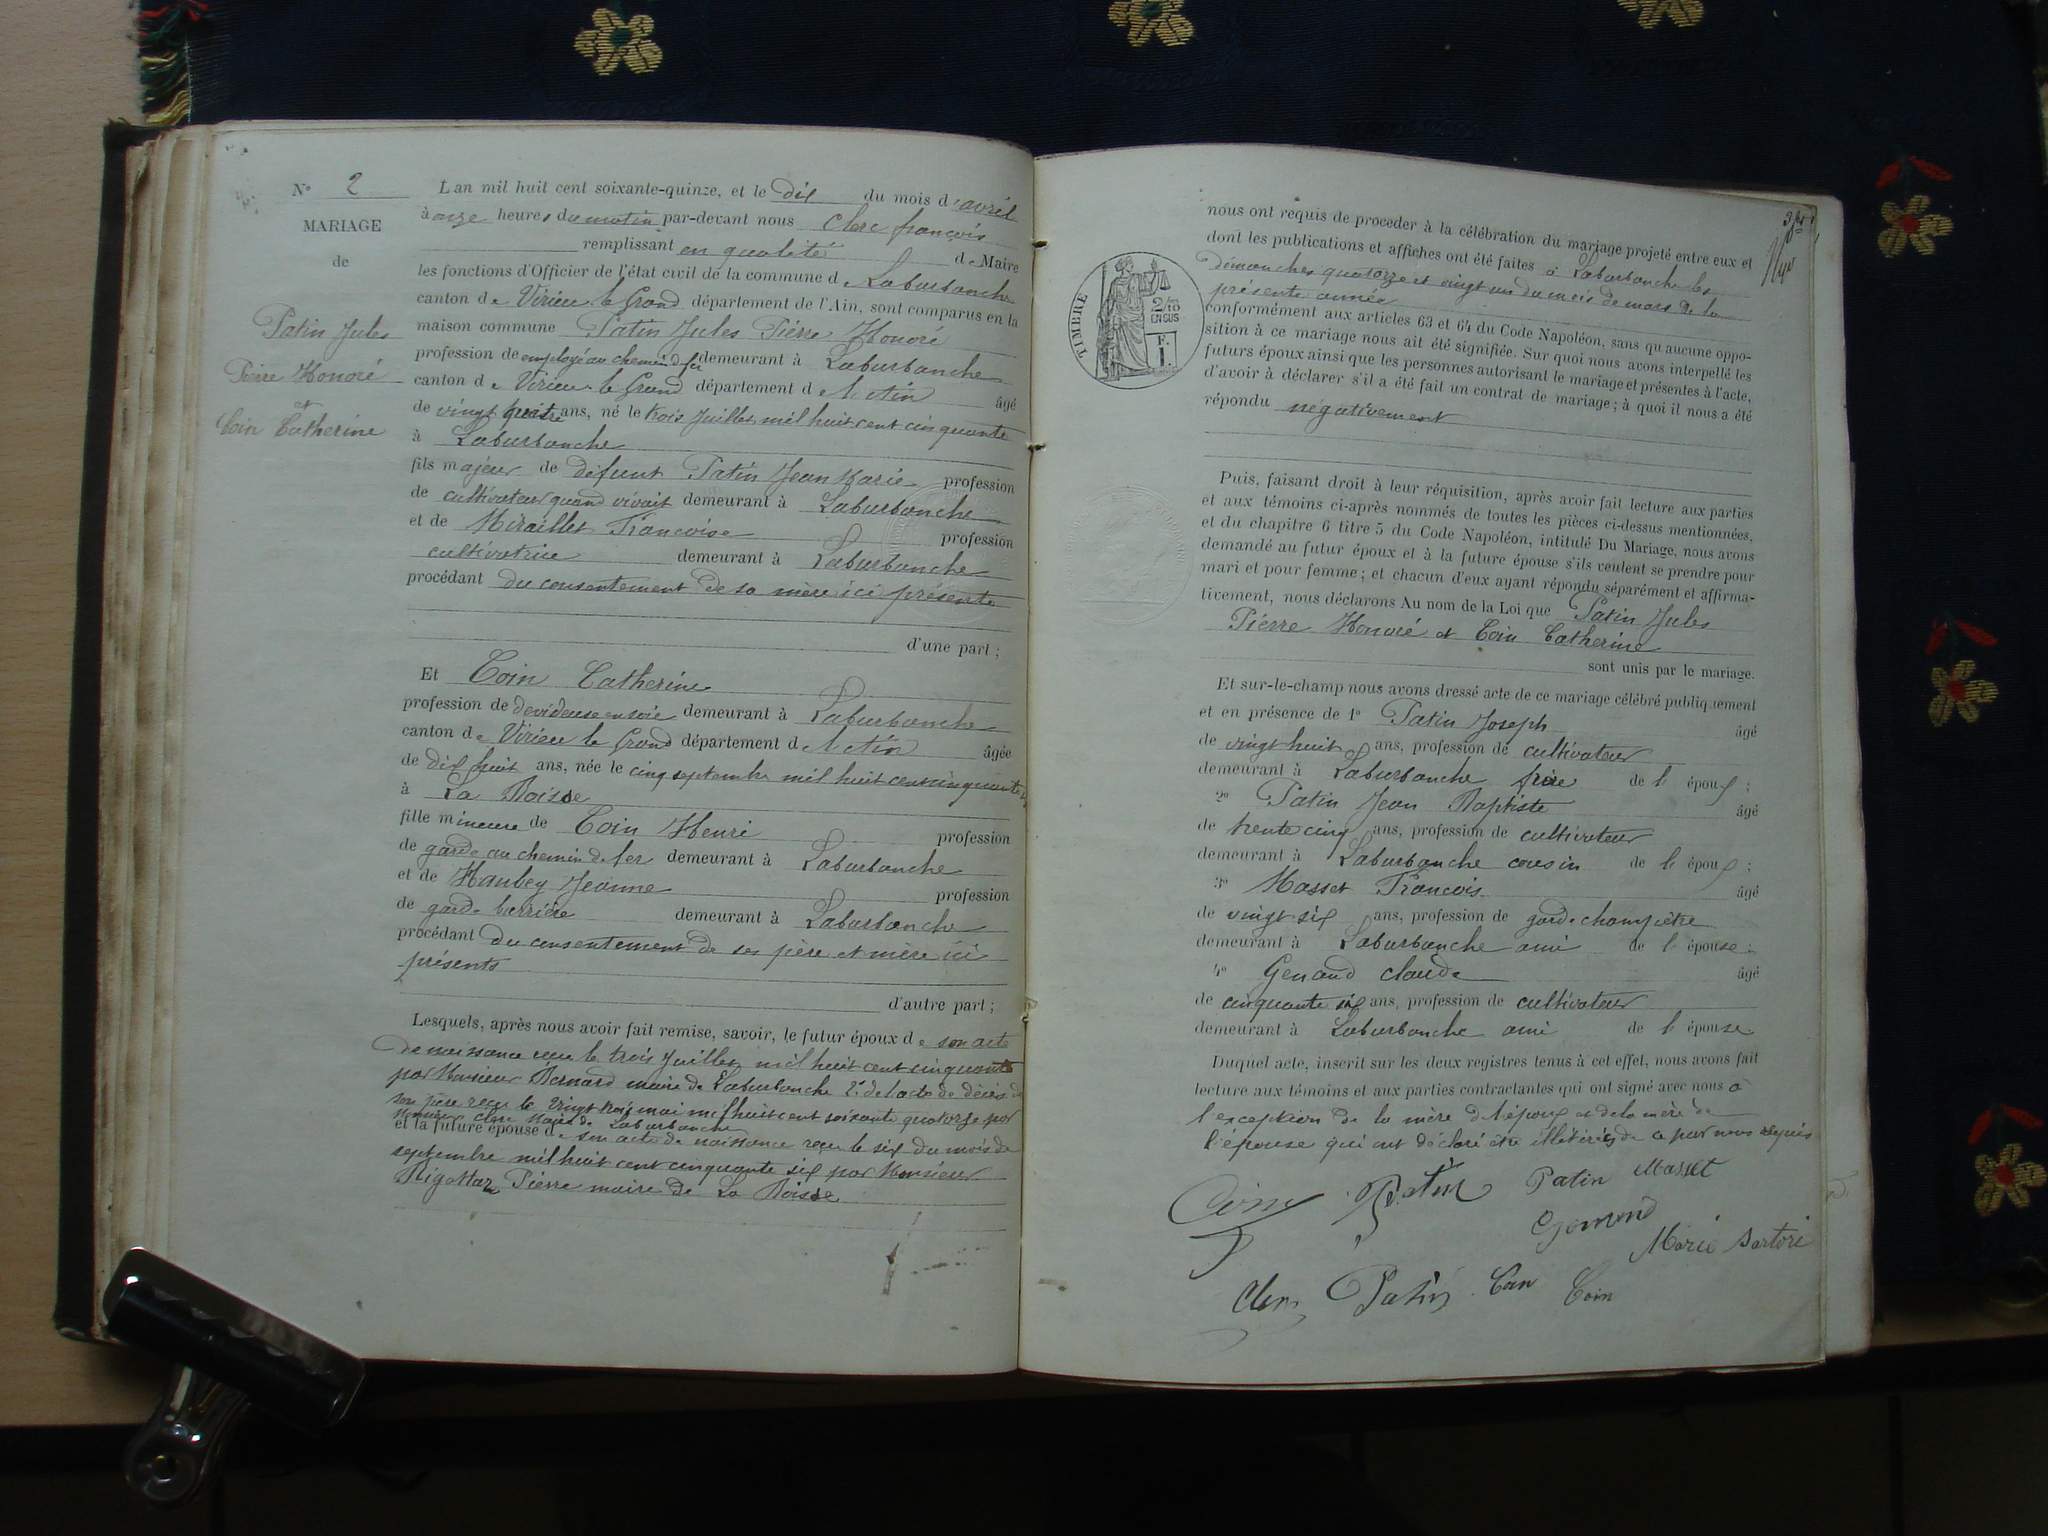 N° 2
MARIAGE
de
Patin Jules
Pierre Honoré
et
Coin Catherine
L'an mil huit cent soixante-quinze, et le dix du mois d'avril
à onze heures du matin par-devant nous Clerc françois
remplissant en qualité de Maire
les fonctions d'Officier de l'état civil de la commune de Laburbanche
canton de Virieu le Grand département de l'Ain, sont comparus en la
maison commune Patin Jules Pierre Honoré
profession de employé au chemin de fer demeurant à Laburbanche
canton de Virieu le Grand département de l'Ain âgé
de vingt quatre ans, né le trois Juillet mil huit cent cinquante
à Laburbanche
fils majeur de défunt Patin Jean Marie profession
de cultivateur quand vivait demeurant à Laburbanche
et de Miraillet Francoise profession
cultivatrice demeurant à Laburbanche
procédant du consentement de sa mère ici présente
d'une part ;
Et Coin Catherine
profession de devideuse en soie demeurant à Laburbanche
canton de Virieu le Grand département de l'Ain âgée
de dix huit ans, née le cinq septembre mil huit cent cinquante six
à La Boisse
fille mineure de Coin Henri profession
de garde au chemin de fer demeurant à Laburbanche
et de Haubey Jeanne profession
de garde barrière demeurant à Laburbanche
procédant du consentement de ses père et mère ici
présents
d'autre part ;
Lesquels, après nous avoir fait remise, savoir, le futur époux de son acte
de naissance reçu le trois Juillet mil huit cent cinquante
par Monsieur Bernard maire de Laburbanche 2° de l'acte de décès de
son père reçu le vingt trois mai mil huit cent soixante quatorze par
Monsieur Clerc Maire de Laburbanche
et la future épouse de son acte de naissance reçu le six du mois de
septembre mil huit cent cinquante six par Monsieur
Rigottaz Pierre maire de La Boisse
nous ont requis de procéder à la célébration du mariage projeté entre eux et
dont les publications et affiches ont été faites à Laburbanche les
dimanches quatorze et vingt un du mois de mars de la
présente année
conformément aux articles 63 et 64 du Code Napoléon, sans qu'aucune oppo-
sition à ce mariage nous ait été signifiée. Sur quoi nous avons interpellé les
futurs époux ainsi que les personnes autorisant le mariage et présentes à l'acte,
d'avoir à déclarer s'il a été fait un contrat de mariage ; à quoi il nous a été
répondu négativement
TIMBRE
2/10
EN SUS
F.
1.
Puis, faisant droit à leur réquisition, après avoir fait lecture aux parties
et aux témoins ci-après nommés de toutes les pièces ci-dessus mentionnées,
et du chapitre 6 titre 5 du Code Napoléon, intitulé Du Mariage, nous avons
demandé au futur époux et à la future épouse s'ils veulent se prendre pour
mari et pour femme ; et chacun d'eux ayant répondu séparément et affirma-
tivement, nous déclarons Au nom de la Loi que Patin Jules
Pierre Honoré et Coin Catherine
sont unis par le mariage.
Et sur-le-champ nous avons dressé acte de ce mariage célébré publiquement
et en présence de 1° Patin Joseph âgé
de vingt huit ans, profession de cultivateur
demeurant à Laburbanche frère de l'époux ;
2° Patin Jean Baptiste âgé
de trente cinq ans, profession de cultivateur
demeurant à Laburbanche cousin de l'époux ;
3° Masset François âgé
de vingt six ans, profession de garde champêtre
demeurant à Laburbanche ami de l'épouse ;
4° Genaud claude âgé
de cinquante six ans, profession de cultivateur
demeurant à Laburbanche ami de l'épouse
Duquel acte, inscrit sur les deux registres tenus à cet effet, nous avons fait
lecture aux témoins et aux parties contractantes qui ont signé avec nous à
l'exception de la mère de l'époux et de la mère de
l'épouse qui ont déclaré être illétirés de ce par nous requis
Patin Patin Masset
Marie Sartori
Clerc Patin Coin Coin